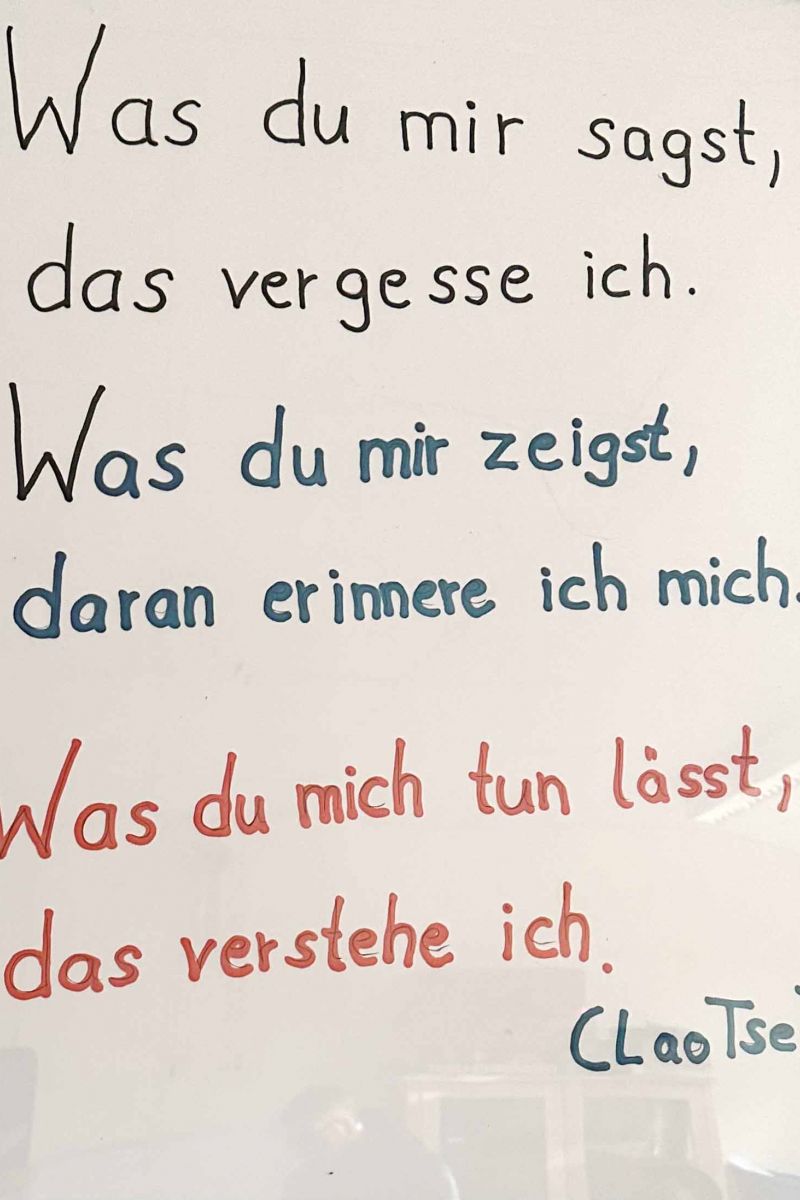 Was du mir sagst,
das vergesse ich.
Was du mir zeigst,
daran erinnere ich mich.
Was du mich tun lässt,
das verstehe ich.
(Lao Tse